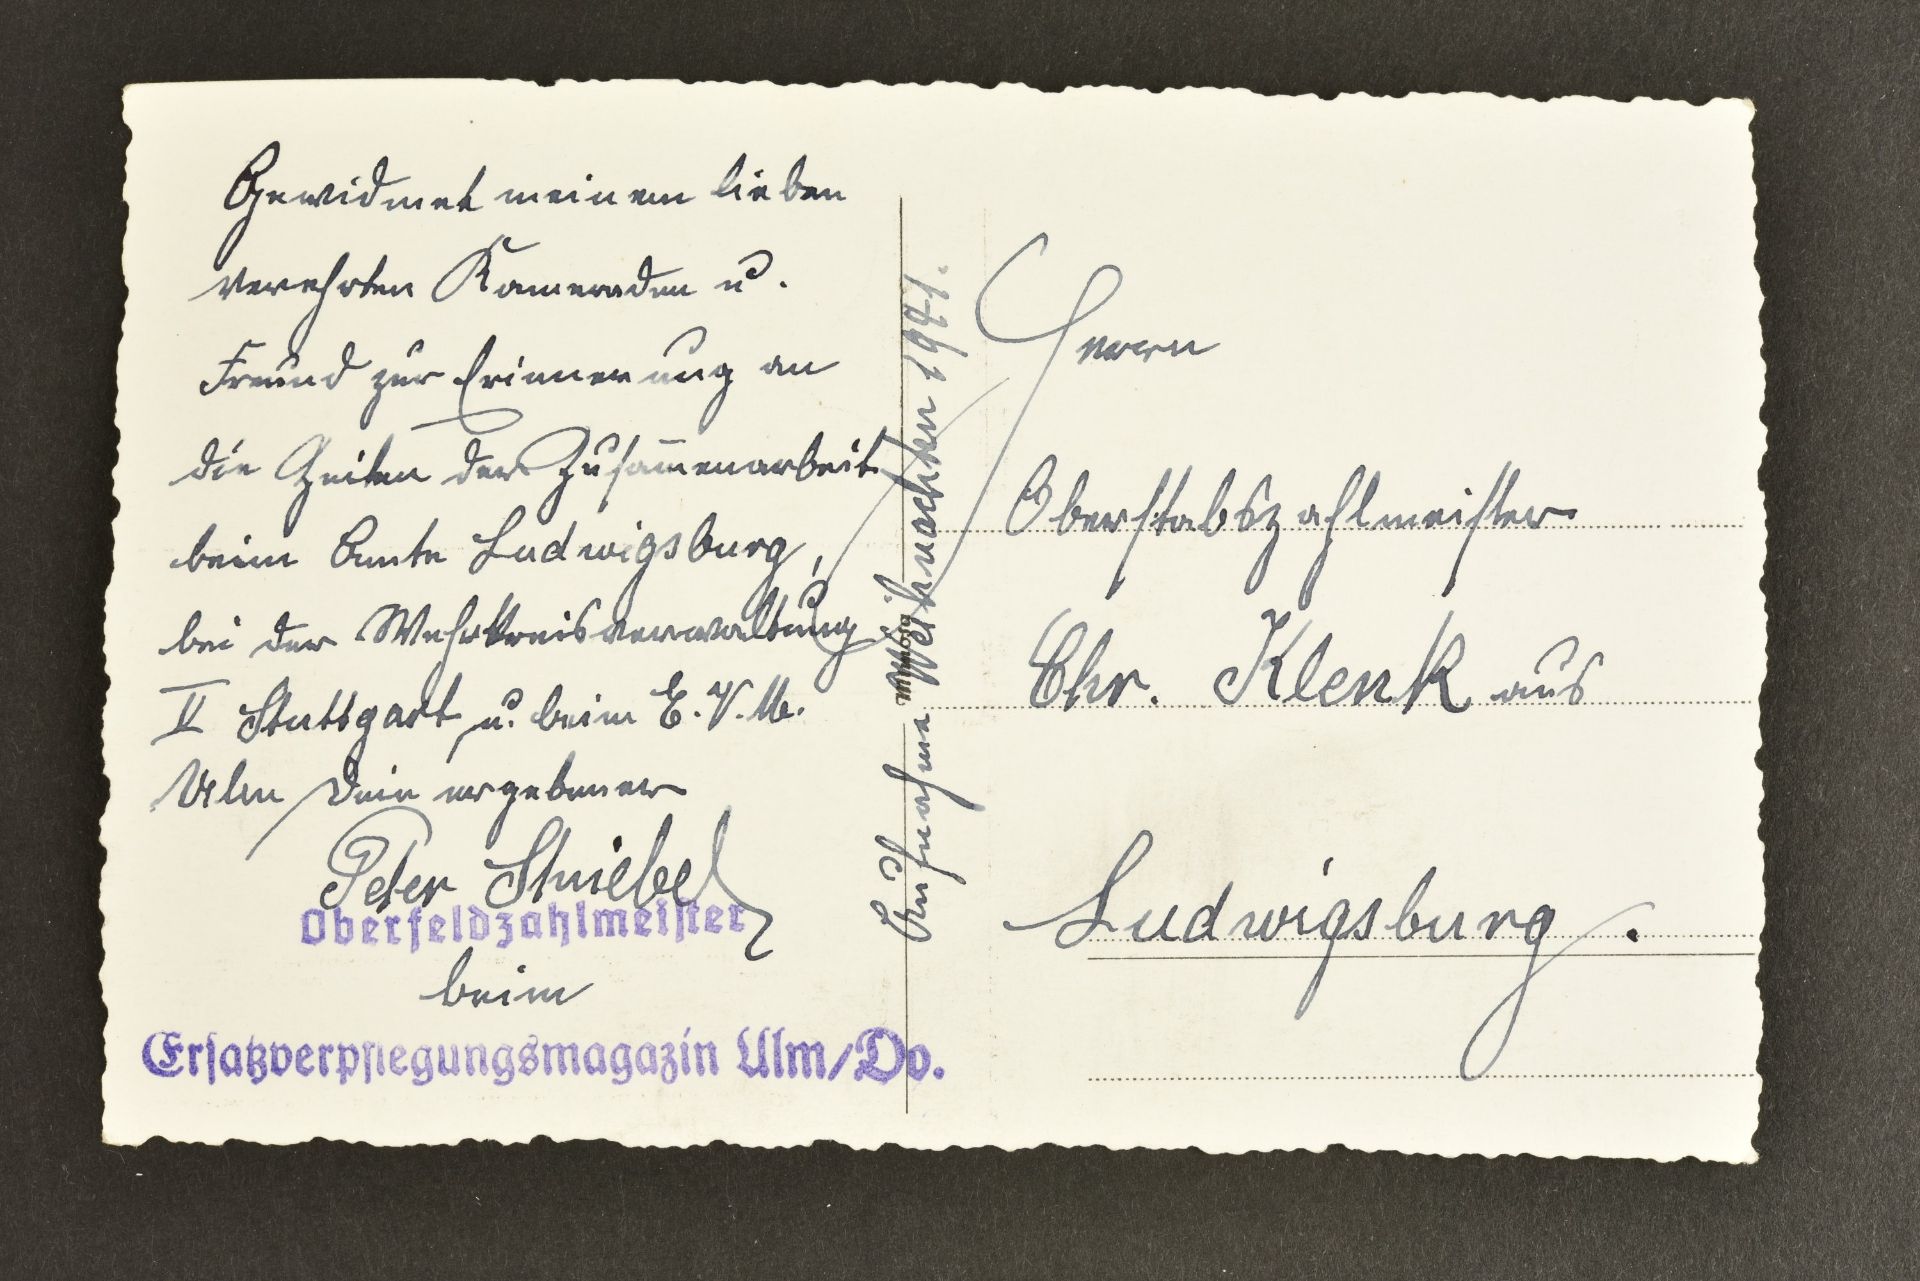 Gewidmet meinem lieben
verehrten Kameraden u.
Freund zur Erinnerung an
die Zeiten der Zusam̅enarbeit
beim Amte Ludwigsburg,
bei der Wehrkreisverwaltung
V Stuttgart u. beim E.V.M.
Ulm Dein ergebener
Peter Stuiebel
Oberfeldzahlmeister
beim
Ersatzverpflegungsmagazin Ulm/Do.
Aufnahme Weihnachten 1941.
Mimosa
Herrn
Oberstabszahlmeister
Chr. Klenk aus
Ludwigsburg.